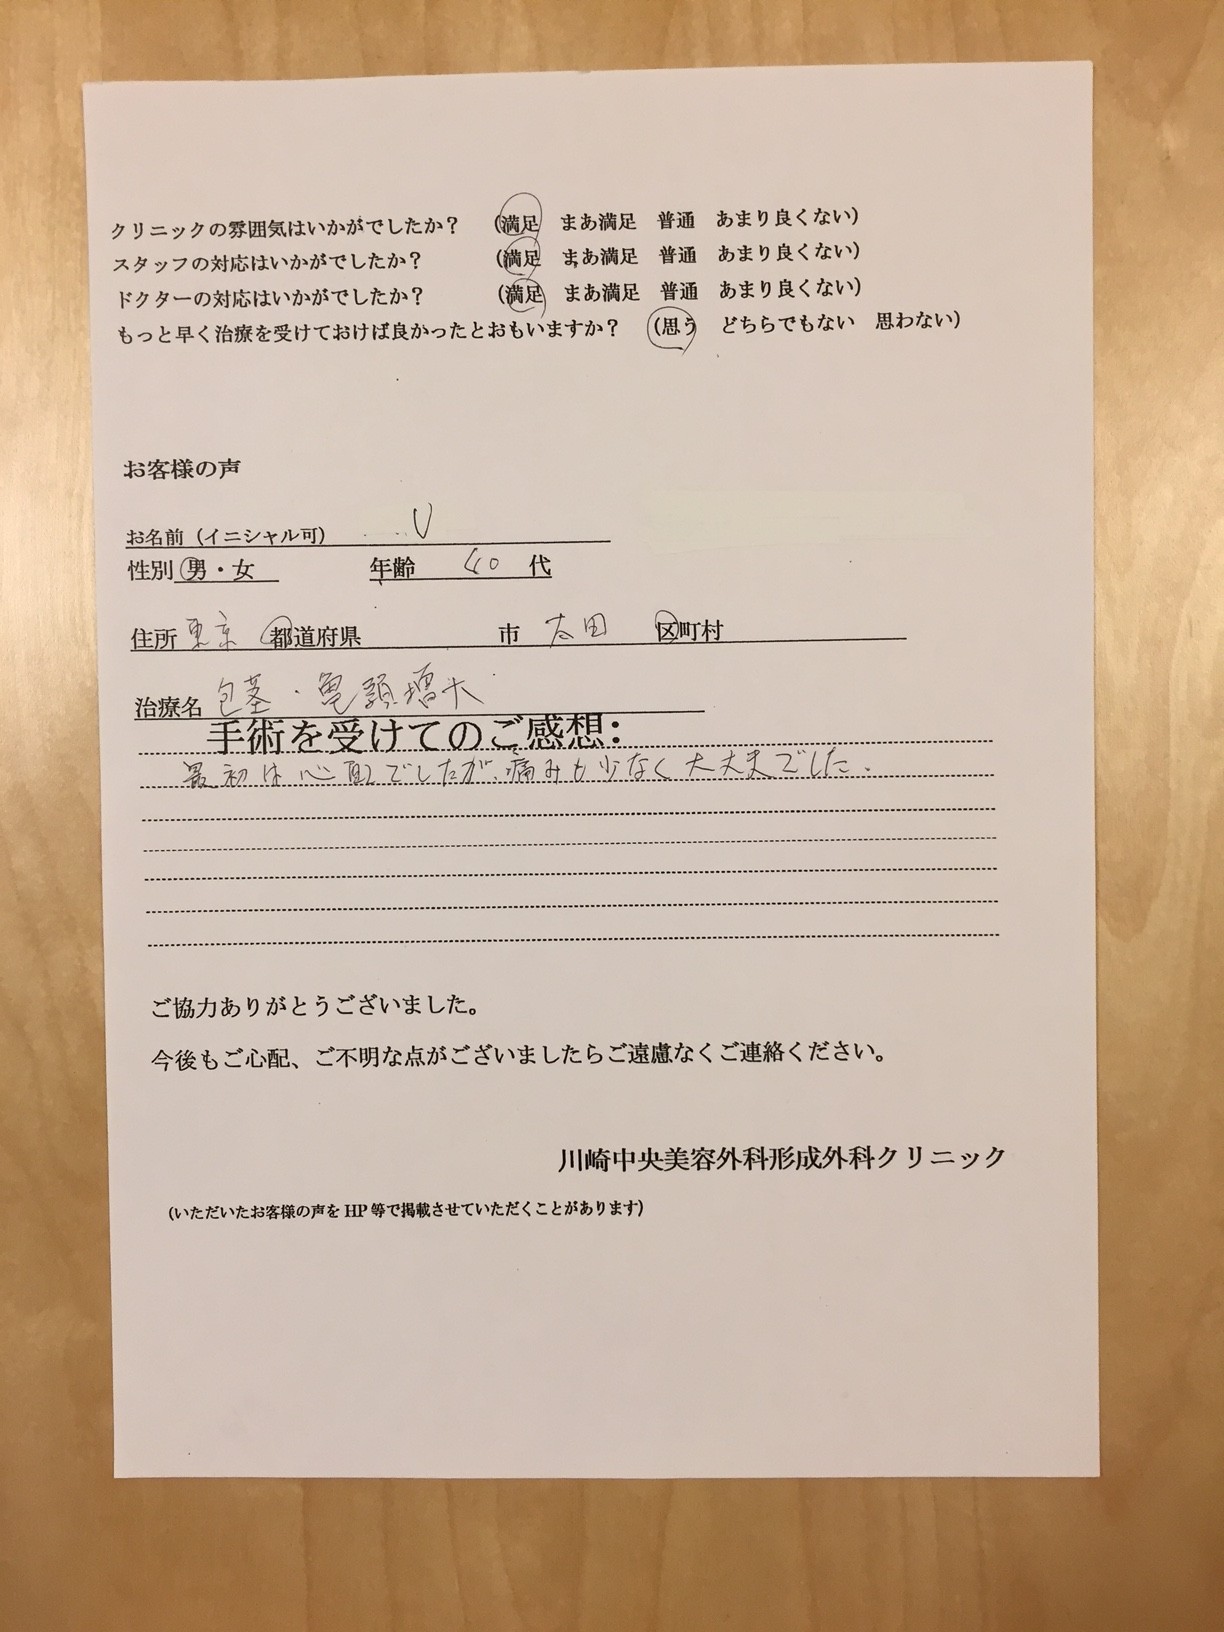 クリニックの雰囲気はいかがでしたか？ (満足 まあ満足 普通 あまり良くない)
スタッフの対応はいかがでしたか？ (満足 まあ満足 普通 あまり良くない)
ドクターの対応はいかがでしたか？ (満足 まあ満足 普通 あまり良くない)
もっと早く治療を受けておけば良かったとおもいますか？ (思う どちらでもない 思わない)
お客様の声
お名前（イニシャル可） U
性別 男・女 年齢 40 代
住所 東京 都道府県 市 太田 区町村
治療名 包茎・亀頭増大
手術を受けてのご感想：
最初は心配でしたが、痛みも少なく大丈夫でした.
ご協力ありがとうございました。
今後もご心配、ご不明な点がございましたらご遠慮なくご連絡ください。
川崎中央美容外科形成外科クリニック
(いただいたお客様の声を HP 等で掲載させていただくことがあります)